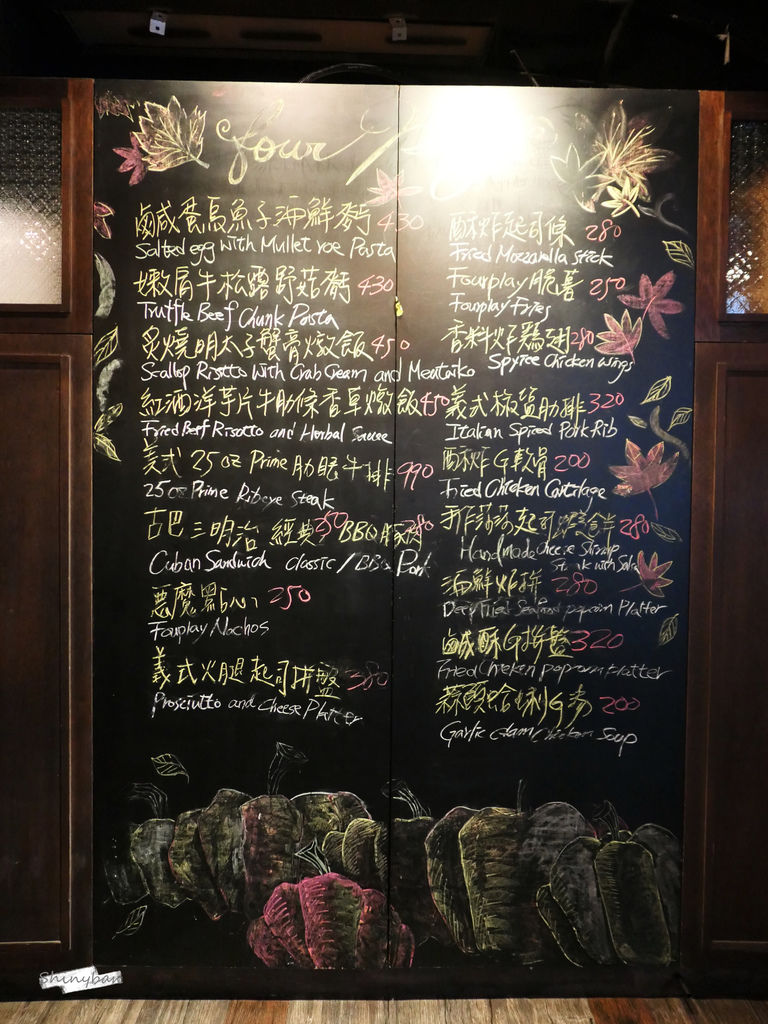 four
鹹蛋烏魚子海鮮麵 430
Salted egg with Mullet roe Pasta
嫩肩牛松露野菇麵 430
Truffle Beef Chunk Pasta
炙燒明太子蟹膏燉飯 450
Scallop Risotto with Crab Cream and Mentaiko
紅酒洋芋片牛肋條香草燉飯 450
Fried Beef Risotto and Herbal Sauce
義式 25oz Prime 肋眼牛排 990
25oz Prime Ribeye Steak
古巴三明治 經典250 BBQ豚肉280
Cuban Sandwich classic / BBQ Pork
惡魔 250
Fourplay Nachos
義式火腿起司拼盤 380
Prosciutto and Cheese Platter
酥炸起司條 280
Fried Mozzarella stick
Fourplay脆薯 250
Fourplay Fries
香料炸雞翅 280
Spyice Chicken wings
義式椒鹽肋排 320
Italian Spiced Pork Rib
酥炸G軟骨 200
Fried Chicken Cartilage
手作莎莎起司 280
Handmade Cheese Shrimp
with Salsa
海鮮炸拼 280
Deep Fried Seafood popcorn Platter
鹹酥G拼盤 320
Fried Chicken popcorn Platter
蒜頭蛤蜊G湯 200
Garlic Clam Chicken Soup
Shinybar